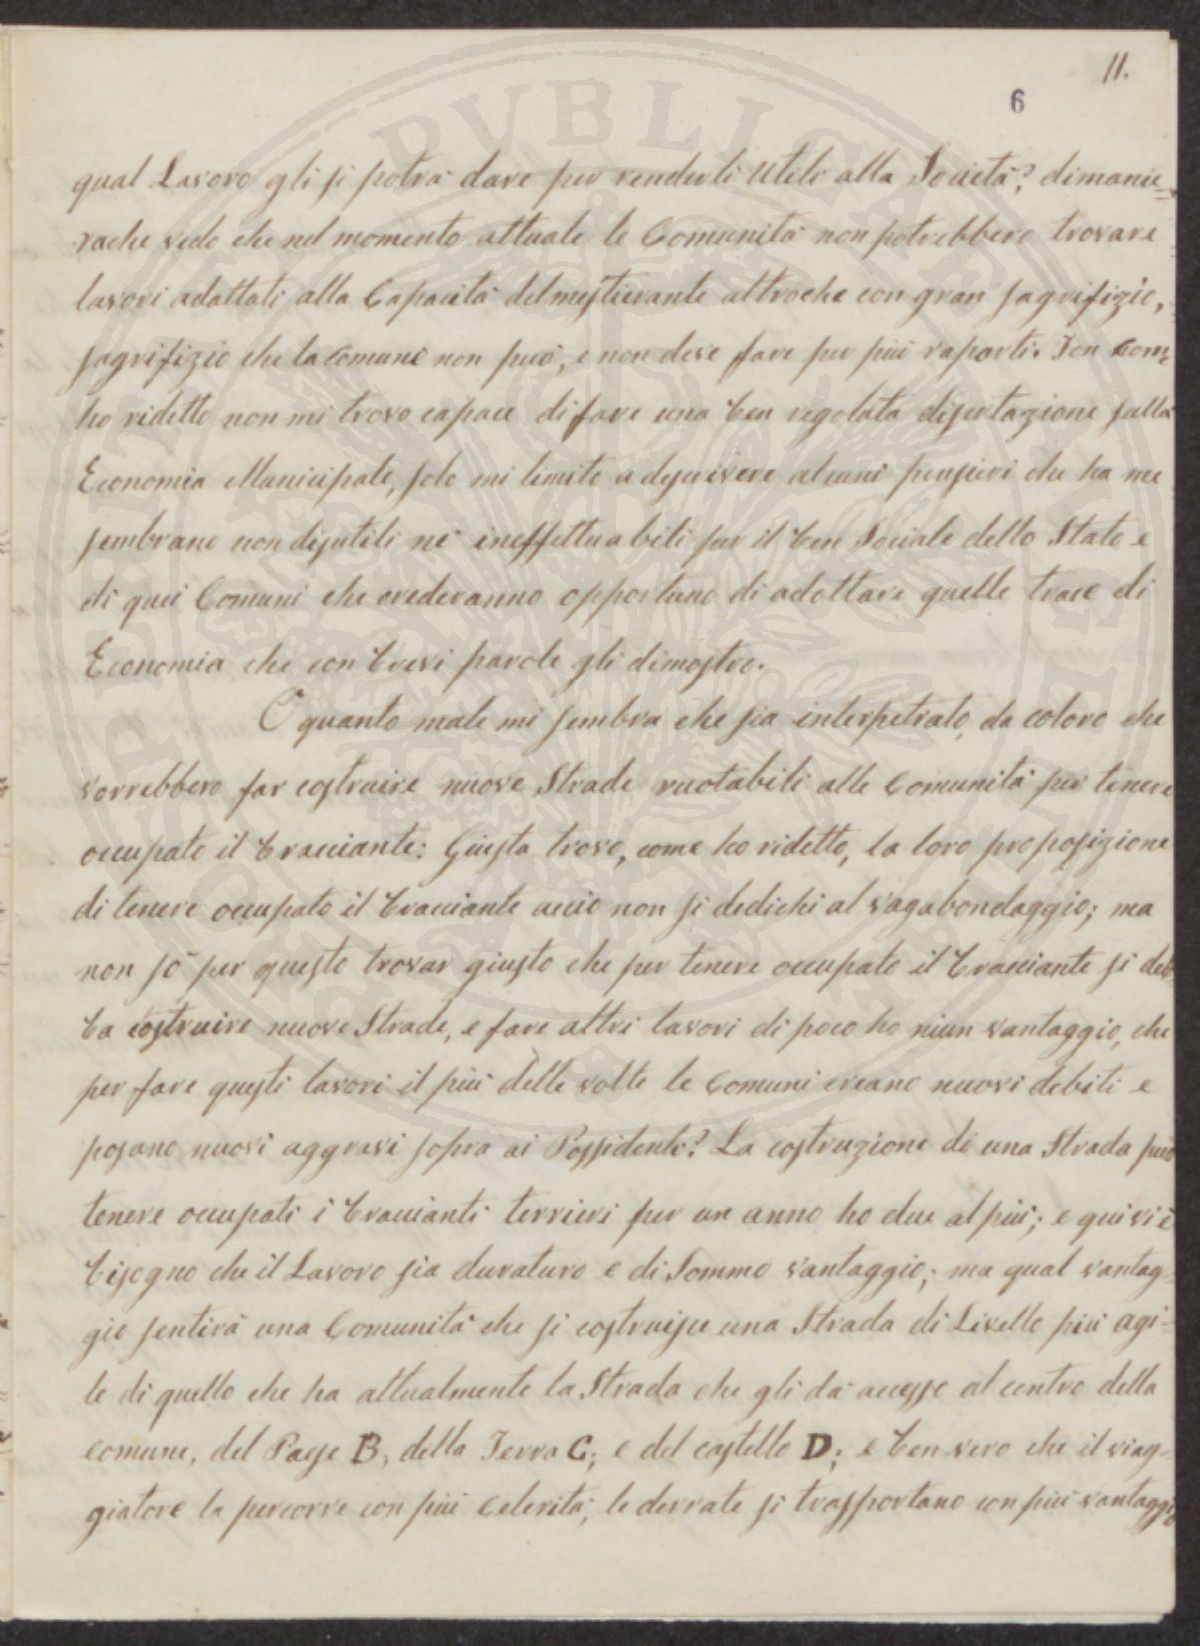 11.
6
qual Lavoro gli si potrà dare per renderli Utili alla Società? dimanie=
rache vedo che nel momento attuale le Comunità non potrebbero trovare
lavori adattati alla Capacità del mestierante altroche con gran sagrifizio,
sagrifizio che la Comune non può, e non deve fare per più raporti. Ion Come
ho ridetto non mi trovo capace di fare una ben regolata disertazione sulla
Economia Municipale, solo mi limito a descrivere alcuni pensieri che ha me
sembrano non disutili nè ineffettuabili per il ben Sociale dello Stato e
di quei Comuni che crederanno opportuno di adottare quelle trace di
Economia che con brevi parole gli dimostro.
O quanto male mi sembra che sia interpetrato, da coloro che
vorrebbero far costruire nuove Strade ruotabili alle Comunità per tenere
occupato il bracciante: Giusta trovo, come ho ridetto, la loro proposizione
di tenere occupato il bracciante acciò non si dedichi al vagabondaggio; ma
non sò per questo trovar giusto che per tenere occupato il bracciante si deb=
ba costruire nuove Strade, e fare altri lavori di poco ho niun vantaggio, che
per fare questi lavori il più delle volte le Comuni creano nuovi debiti e
posano nuovi aggravi sopra ai Possidenti? La costruzione di una Strada può
tenere occupati i braccianti terrieri per un anno ho due al più; e qui vi è
bisogno che il Lavoro sia duraturo e di Sommo vantaggio; ma qual vantag=
gio sentirà una Comunità che si costruisce una Strada di Livello più agi=
le di quello che ha attualmente la Strada che gli dà accesso al centro della
comune, del Paese B, della Terra C; e del castello D; e ben vero che il viag=
giatore la percorre con più Celerità, le derrate si trasportano con più vantaggio